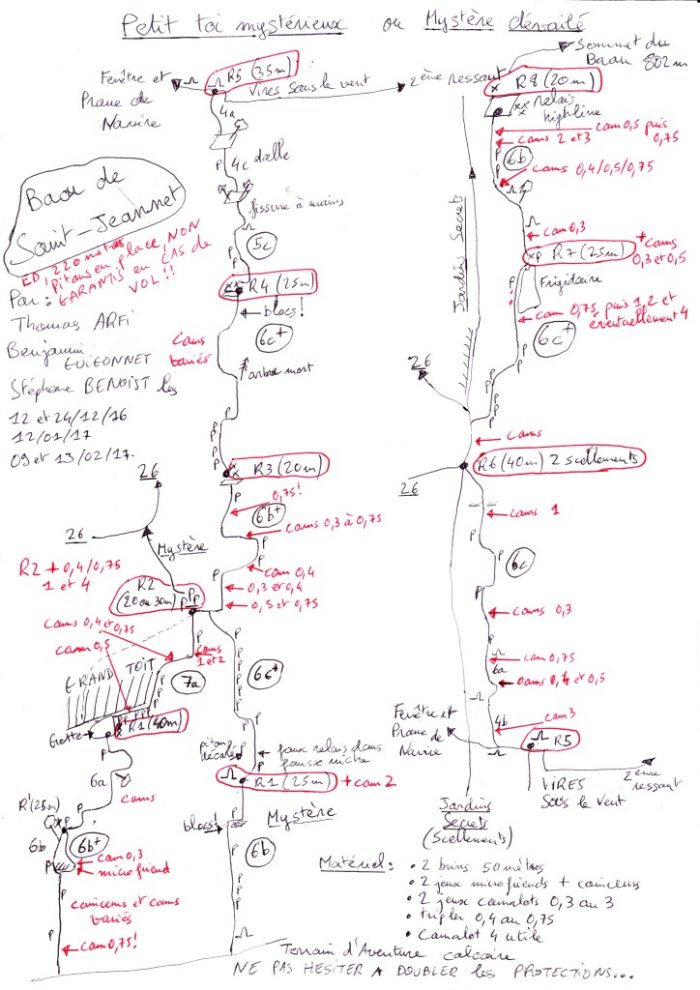 Petit toi mystérieux ou Mystère dévoilé
R5 (35m)
Fenêtre et
Prane de
Navire
Vires sous le vent
2ème ressaut
R8 (20m)
Sommet du
Baou 802m
relais
highline
cam 0,5 puis
0,75
cams 2 et 3
6b
cams 0,4/0,5/0,75
cam 0,3
R7 (25m)
+ cams
0,3 et 0,5
Frigidaire
cam 0,75 puis 1, 2 et
éventuellement 4
6c+
Jardins Secrets
26
cams
R6 (40m) 2 scellements
26
cams 1
6c
cams 0,3
cam 0,75
6a
cams 0,4 et 0,5
cam 3
4b
Fenêtre et
Prane de
Navire
R5
VIRES
Sous le Vent
2ème
ressaut
Jardins
Secrets
(Scellements)
Baou de
Saint-Jeannet
ED, 220 mètres
Pitons en place, NON
GARANTIS en CAS de
VOL!!
Par :
Thomas ARFI
Benjamin
GUIGONNET
Stéphane BENOIST les
12 et 24/12/16
12/01/17
09 et 13/02/17.
4a
4c dalle
fissure à mains
5c
R4 (25m)
blocs!
6c+
cams
variés
arbre mort
R3 (20m)
0,75!
6b+
cams 0,3 à 0,75
cam 0,4
0,3 et 0,4
0,5 et 0,75
26
26
Mystère
R2 + 0,4/0,75
1 et 4
R2
(20 ou 30m)
cams 0,4 et 0,75
cam 0,5
cams
1 et 2
GRAND TOIT
7a
6c+
Grotte
R1 (40m)
piton
décalé
faux relais dans
fausse niche
R1 (25m) + cam 2
6a
cams
R'(25m)
6b
6b+
cam 0,3
microfriend
coinceurs et cams
variés
cam 0,75!
blocs!
Mystère
6b
Matériel :
• 2 brins 50 mètres
• 2 jeux microfriends + coinceurs
• 2 jeux camalots 0,3 au 3
• tripler 0,4 au 0,75
• Camalot 4 utile
Terrain d'Aventure calcaire
NE PAS HESITER A DOUBLER les PROTECTIONS...